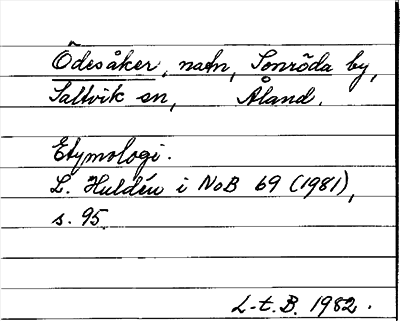 Ödesåker, natn, Sonröda by,
Saltvik sn, Åland.
Etymologi.
L. Huldén i NoB 69 (1981),
s. 95.
L-t. B. 1982.